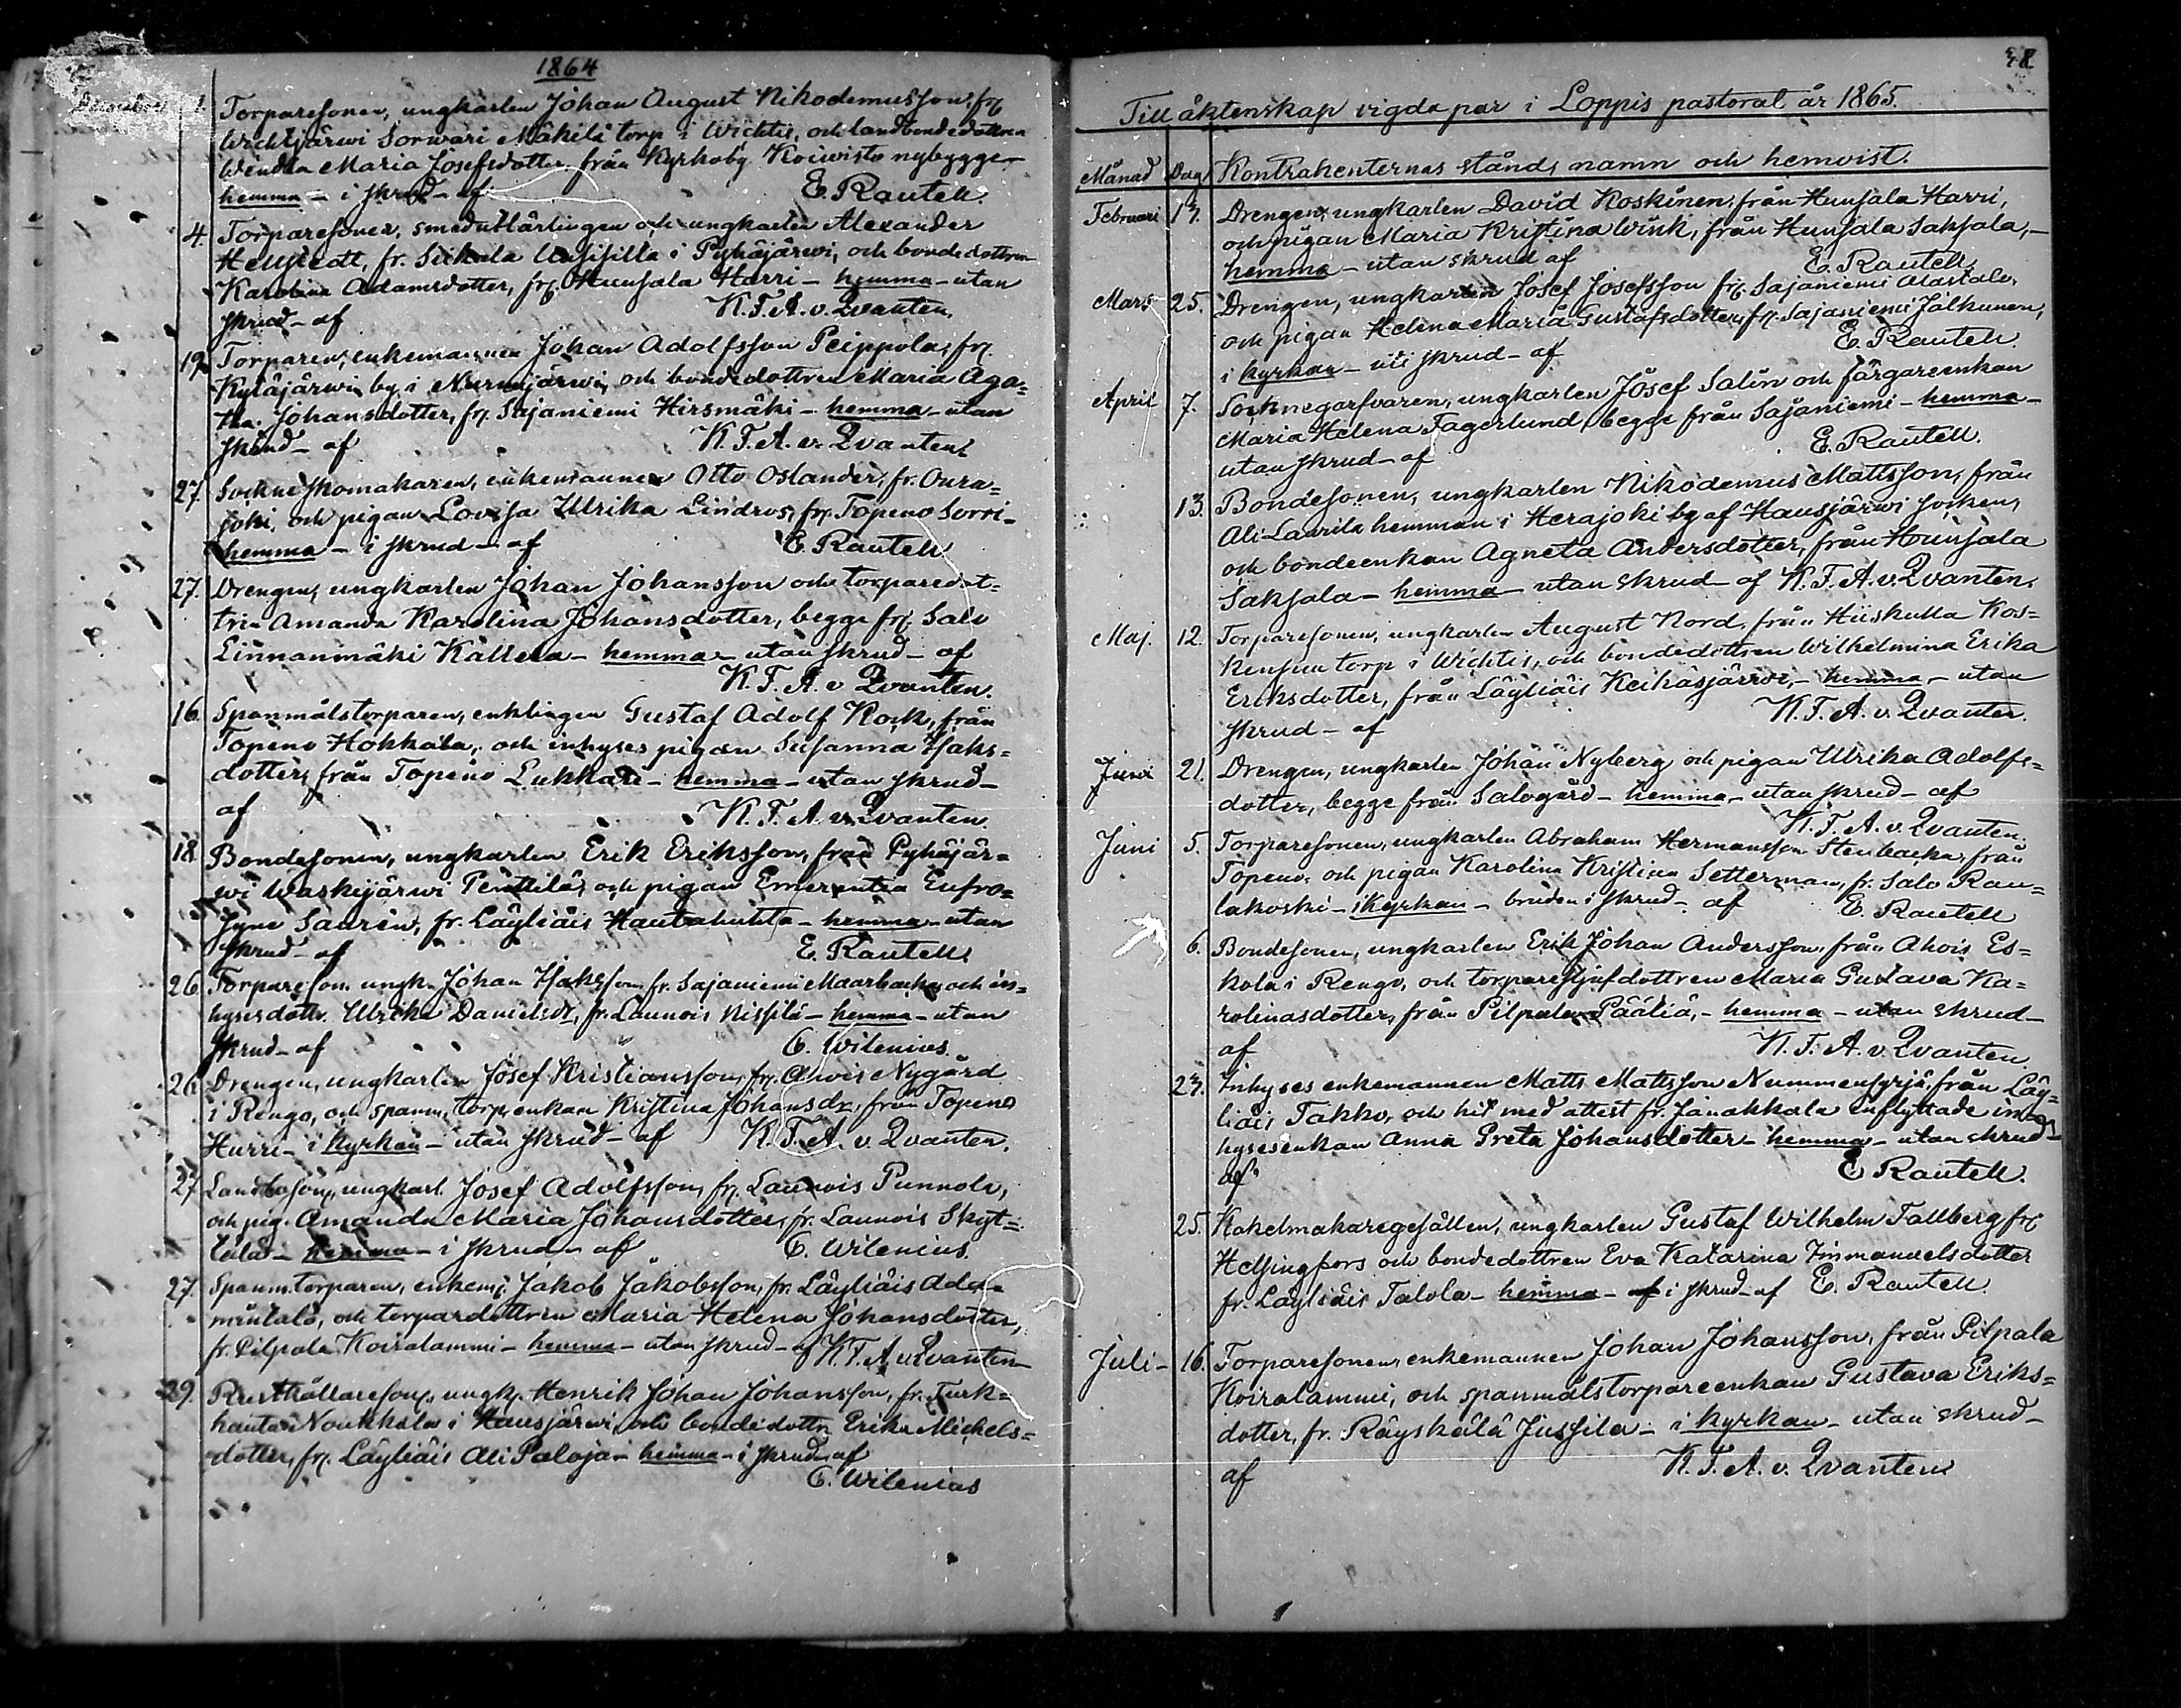 1864
December 1. Torparesonen, ungkarlen Johan August Nikodemusson, frn
Wichtijärwi Sorwari Mäkilä torp i Wichtis, och landbondedottren
Wendla Maria Josefsdotter från Kyrkoby Koiwisto nybygge-
hemma - i skrud - af E. Rautell.
4. Torparesonen, smedslärlingen och ungkarlen Alexander
Hellstedt, fr. Siikala Uusisilla i Pyhäjärwi, och bondedottren
Karolina Adamsdotter, frn Hunsala Harri - hemma - utan
skrud - af K. F. A. v. Qvanten.
19. Torparen, enkemannen Johan Adolfsson Peippola, frn
Kyläjärwi by i Nurmijärwi, och bondedottren Maria Aga=
tha Johansdotter, frn Sajaniemi Hirsmäki - hemma - utan
skrud - af K. F. A. v. Qvanten
27. Sockneskomakaren, enkemannen Otto Oslander, fr. Oura=
joki, och pigan Lovisa Ulrika Lindros, frn Topeno Sorri -
hemma - i skrud - af E. Rautell
27. Drengen, ungkarlen Johan Johansson och torparedot=
tren Amanda Karolina Johansdotter, begge frn Salo
Linnanmäki Källela - hemma - utan skrud - af
K. F. A. v Qvanten.
16. Spanmålstorparen, enklingen Gustaf Adolf Kock, från
Topeno Hokkala, och inhyses pigan Susanna Isaks=
dotter, från Topeno Lukkari - hemma - utan skrud -
af K. F. A. v. Qvanten.
18. Bondesonen, ungkarlen Erik Eriksson, från Pyhäjär=
wi Waskijärwi Penttilä, och pigan Emerentia Eufro=
syne Saurén, fr. Läyliäis Hautahuhta - hemma - utan
skrud - af E. Rautell.
26. Torpareson. ungk. Johan Isaksson fr. Sajaniemi Maarbacka, och in=
hysesdottr. Ulrika Danielsdr, fr. Launois Nissilä - hemma - utan
skrud - af C. Wilenius.
26. Drengen, ungkarlen Josef Kristiansson, frn Ahois Nygård
i Rengo, och spanm. torp. enkan Kristina Johansdr, från Topeno
Hurri - i kyrkan - utan skrud - af K. F. A. v. Qvanten.
27. Landbosonen, ungkarl. Josef Adolfsson, frn Launois Punnola,
och pig. Amanda Maria Johansdotter, fr. Launois Skyt=
tälä - hemma - i skrud - af C. Wilenius.
27. Spanm. torparen, enkem. Jakob Jakobsson, fr. Läyliäis Ada=
mintalo, och torpardottren Maria Helena Johansdotter,
fr. Pilpala Koiralammi - hemma - utan skrud - af K. F. A. v Qvanten
29. Rusthållareson, ungk. Henrik Johan Johansson, fr. Turk=
hauta Noukkala i Hausjärwi, och bondedottr. Erika Michels=
dotter, frn Läyliäis Ali Paloja - hemma - i skrud - af
C. Wilenius
38
Till äktenskap vigda par i Loppis pastorat år 1865.
Månad Dag Kontrahenternas stånd, namn och hemvist.
Februari 17. Drengen, ungkarlen David Koskinen, från Hunsala Harri,
och pigan Maria Kristina Wink, från Hunsala Saksala, -
hemma - utan skrud af E. Rautell
Mars 25. Drengen, ungkarlen Josef Josefsson frn Sajaniemi Alastalo,
och pigan Helena Maria Gustafsdotter, frn Sajaniemi Jälkunen,
i kyrkan - uti skrud - af E. Rautell.
April 7. Socknegarfvaren, ungkarlen Josef Salin och färgareenkan
Maria Helena Fagerlund, begge från Sajaniemi - hemma -
utan skrud - af E. Rautell.
13. Bondesonen, ungkarlen Nikodemus Mattsson, från
Ali Laurila hemman i Herajoki by af Hausjärwi socken,
och bondeenkan Agneta Andersdotter, från Hunsala
Saksala - hemma - utan skrud - af K. F. A. v. Qvanten.
Maj. 12. Torparesonen, ungkarlen August Nord, från Hiiskulla Kos=
kensuu torp i Wichtis, och bondedottren Wilhelmina Erika
Eriksdotter, från Läyliäis Keihäsjärwi, - hemma - utan
skrud - af K. F. A. v. Qvanten.
Juni 21. Drengen, ungkarlen Johan Nyberg och pigan Ulrika Adolfs=
dotter, begge från Salogård - hemma - utan skrud - af
K. F. A. v. Qvanten.
Juni 5. Torparesonen, ungkarlen Abraham Hermansson Stenbacka, från
Topeno, och pigan Karolina Kristina Setterman, fr. Salo Rau=
lakoski - i Kyrkan - bruden i skrud - af E. Rautell
6. Bondesonen, ungkarlen Erik Johan Andersson, från Ahois Es=
kola i Rengo, och torparestjufdottren Maria Gustava Ka=
rolinasdotter, från Pilpala Pääliä, - hemma - utan skrud -
af K. F. A. v. Qvanten.
23. Inhyses enkemannen Matts Mattsson Nummensyrjä, från Läy=
liäis Takko, och hit med attest fr. Janakkala inflyttade in=
hysesenkan Anna Greta Johansdotter - hemma - utan skrud -
af E. Rautell.
25. Kakelmakaregesällen, ungkarlen Gustaf Wilhelm Tallberg frn
Helsingfors och bondedottren Eva Katarina Immanuelsdotter
fr. Läyliäis Talola - hemma - af i skrud - af E. Rautell.
Juli - 16. Torparesonen, enkemannen Johan Johansson, från Pilpala
Koiralammi, och spanmålstorpareenkan Gustava Eriks=
dotter, fr. Räyskälä Jussila - i kyrkan - utan skrud -
af K. F. A. v. Qvanten